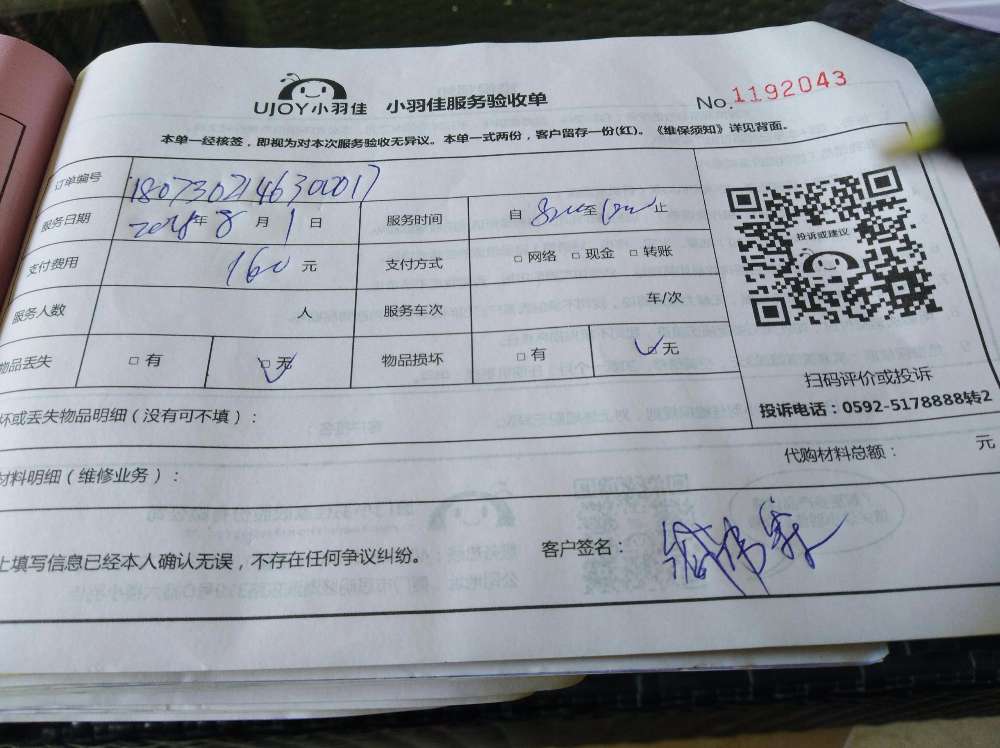 UJOY小羽佳 小羽佳服务验收单 No.1192043
本单一经核签，即视为对本次服务验收无异议。本单一式两份，客户留存一份(红)。《维保须知》详见背面。
订单编号 1807302146300017
服务日期 2018年 8 月 1 日 服务时间 自 至 止
投诉或建议
支付费用 160 元 支付方式 □ 网络 □ 现金 □ 转账
服务人数 人 服务车次 车/次
物品丢失 □ 有 □ 无 物品损坏 □ 有 □ 无
扫码评价或投诉
投诉电话：0592-5178888转2
坏或丢失物品明细（没有可不填）：
材料明细（维修业务）： 代购材料总额： 元
上填写信息已经本人确认无误，不存在任何争议纠纷。 客户签名：